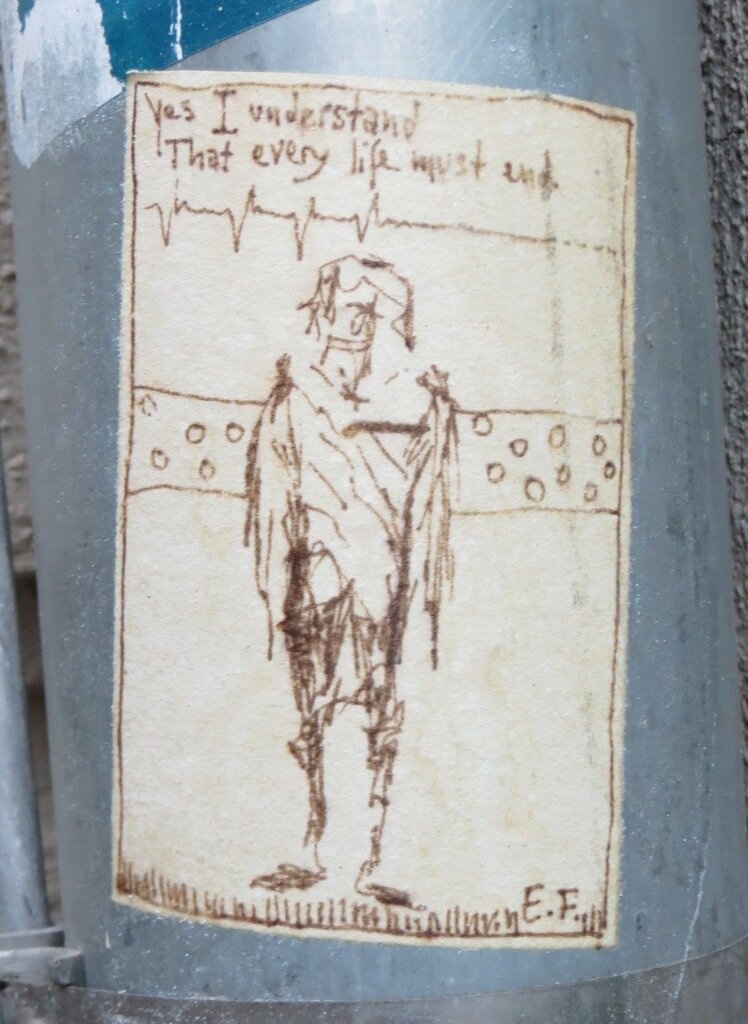 yes I understand
That every life must end.
E.F.